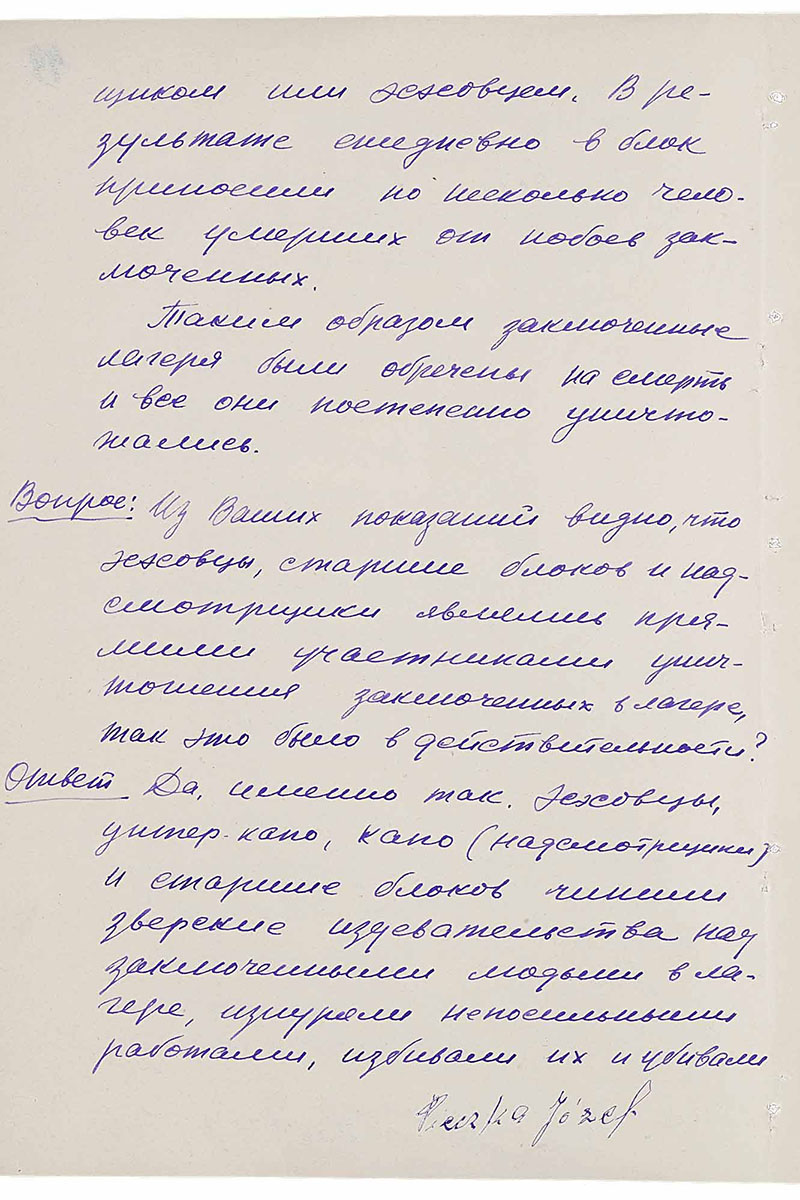 щиком или эсэсовцем. В ре-
зультате ежедневно в блок
приносили по несколько чело-
век умерших от побоев зак-
люченных.
Таким образом заключенные
лагеря были обречены на смерть
и все они постепенно уничто-
жались.
Вопрос: Из Ваших показаний видно, что
эсэсовцы, старшие блоков и над-
смотрщики являлись пря-
мыми участниками унич-
тожения заключенных в лагере,
так это было в действительности?
Ответ Да, именно так. Эсэсовцы,
унтер-капо, капо (надсмотрщики)
и старшие блоков чинили
зверские издевательства над
заключенными людьми в ла-
гере, изнуряли непосильными
работами, избивали их и убивали
Józef